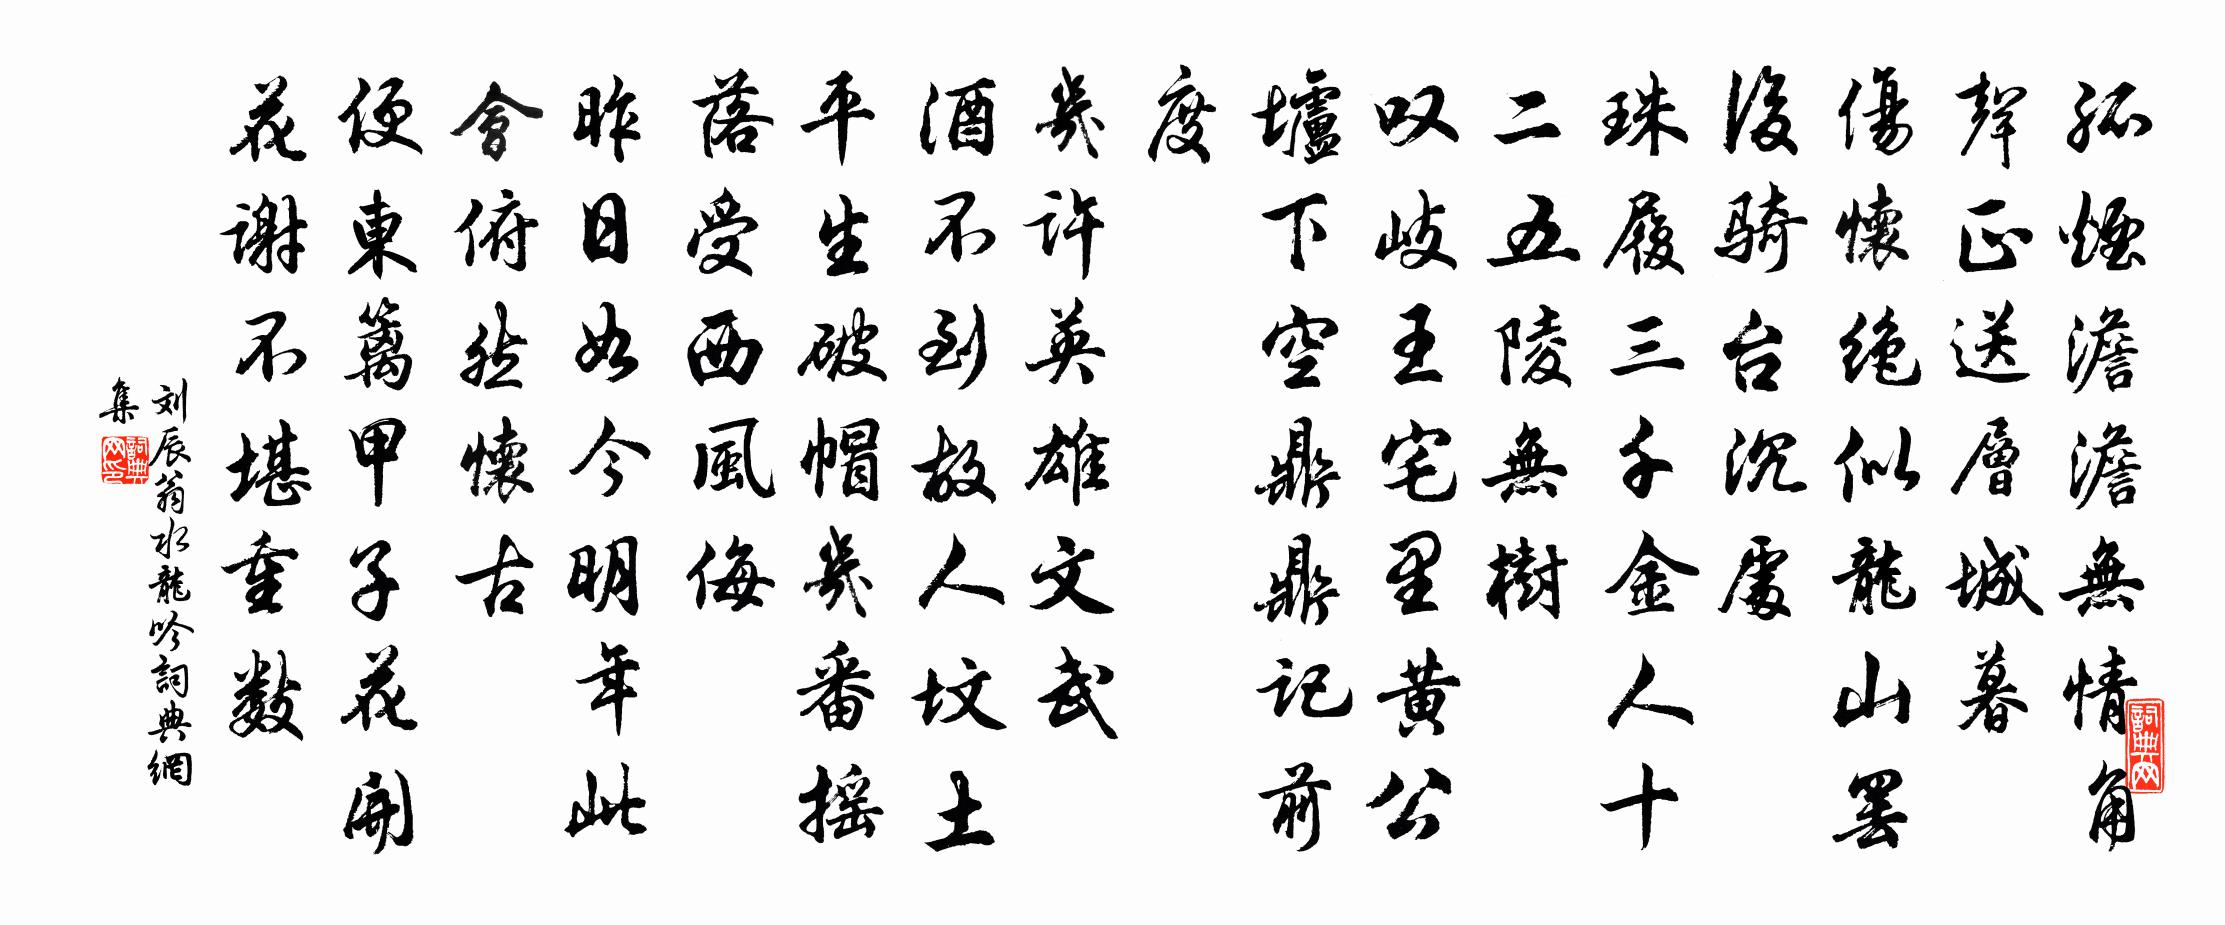 孤煙澹澹無情角
聲正送層城暮
傷懷絶似龍山罢
後騎台沉處
珠履三千金人十
二五陵無樹
叹岐王宅里黄公
壚下空鼎鼎記前
度
幾许英雄文武
酒不到故人坟土
平生破帽幾番摇
落受西風侮
昨日如今明年此
會俯然懷古
便東籬甲子花開
花謝不堪重数
刘辰翁水龍吟詞典網
集
詞典网
詞典网印